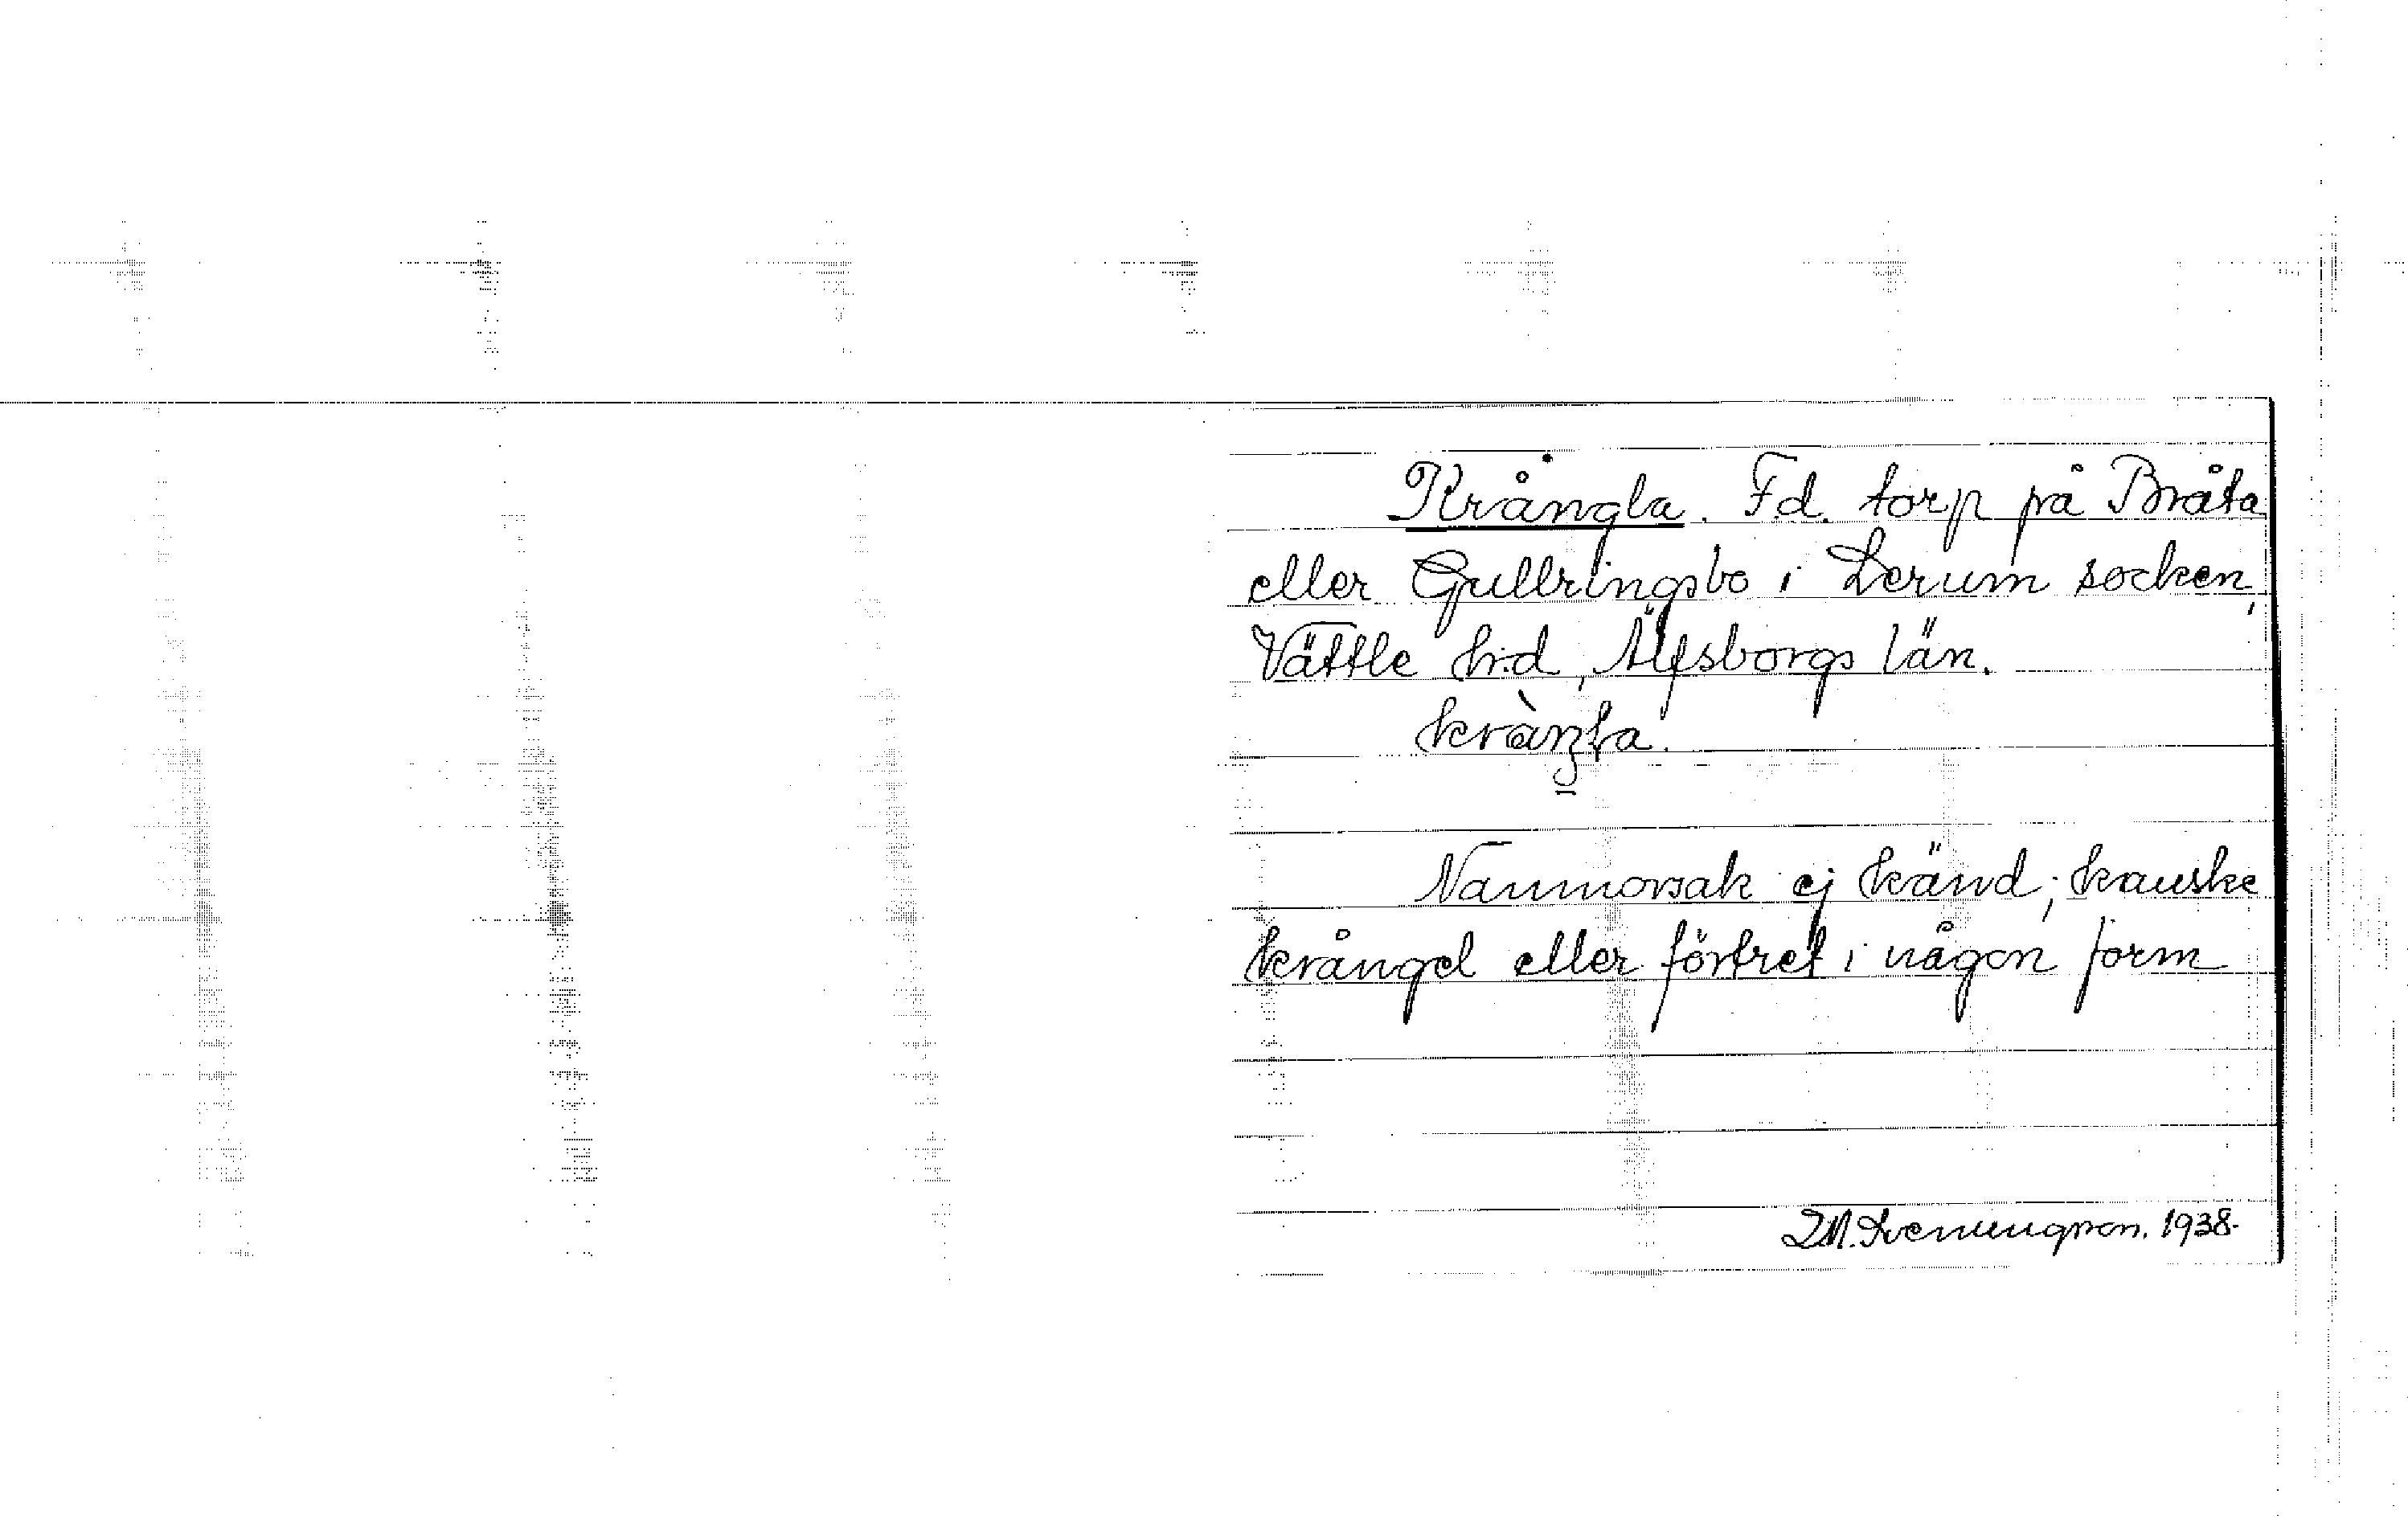 Krångla. F.d. torp på Bråta
eller Gullringsbo i Lerum socken,
Vättle h:d, Älfsborgs län.
Namnorsak ej känd; kanske
krångel eller förtret i någon form
1938.